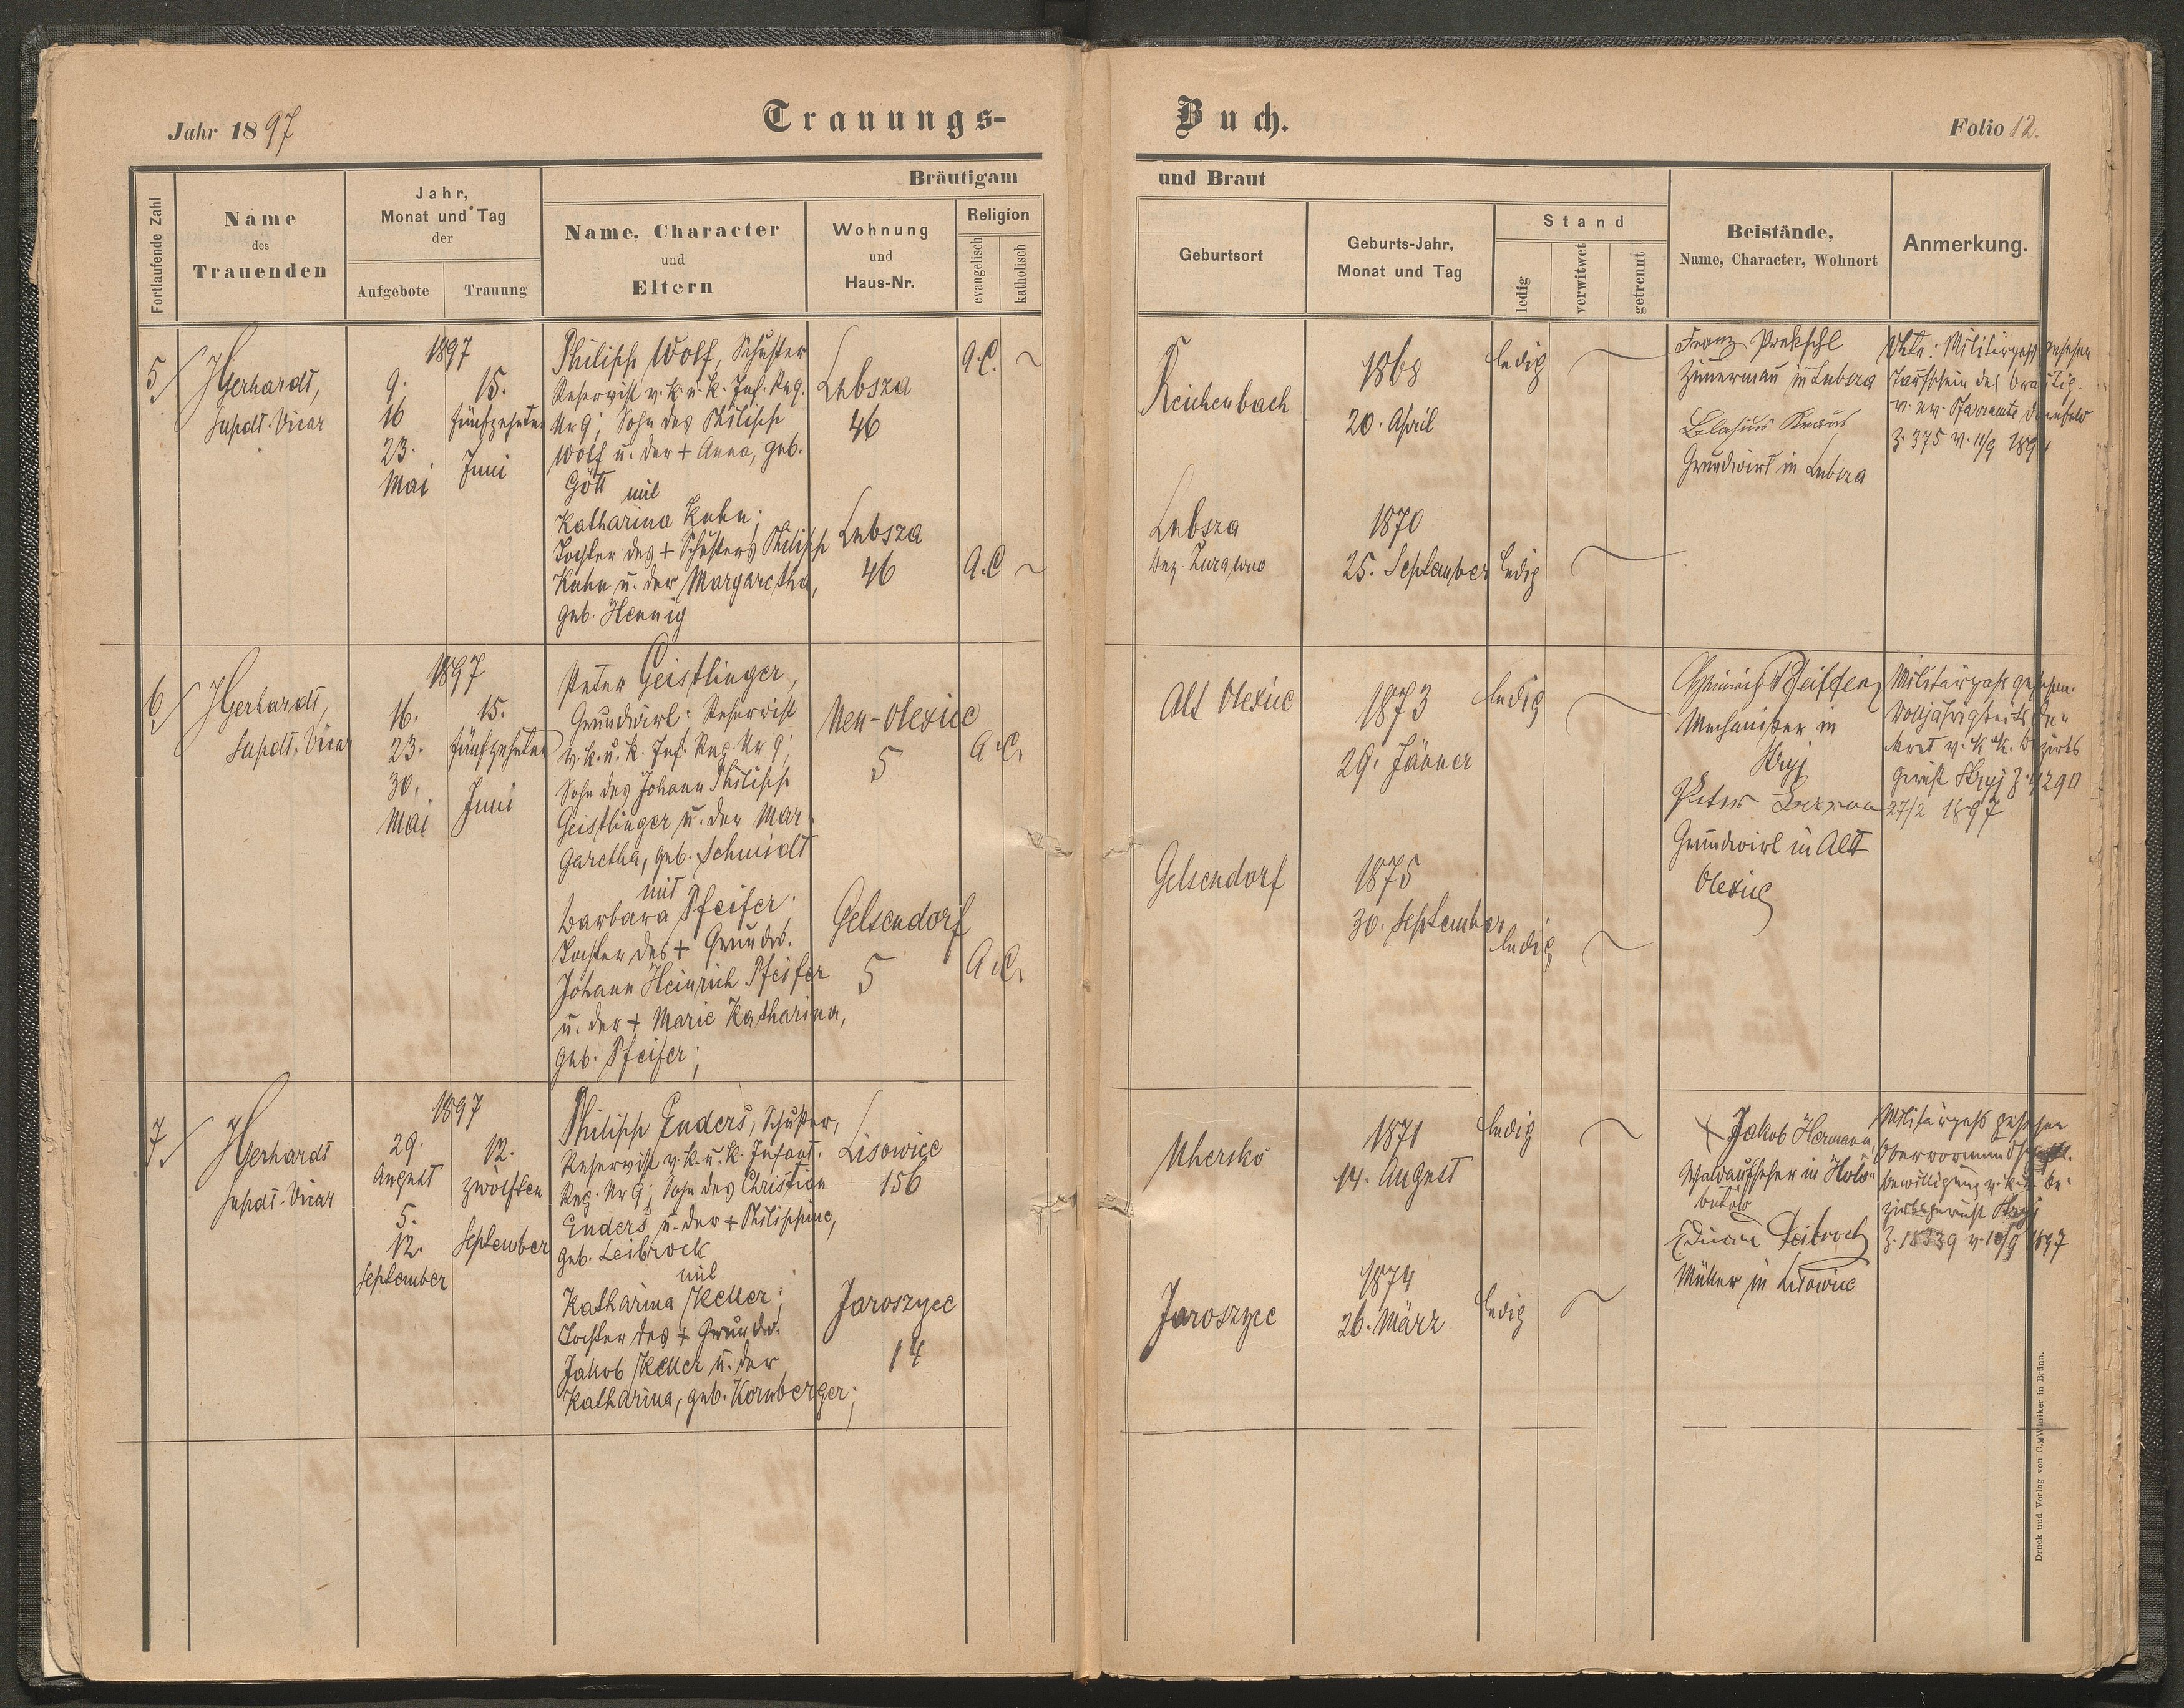 Jahr 1897
Trauungs-
Buch.
Folio 12.
Fortlaufende Zahl
Name
des
Trauenden
Jahr,
Monat und Tag
der
Aufgebote
Trauung
Bräutigam
und Braut
Name, Character
und
Eltern
Wohnung
und
Haus-Nr.
Religion
evangelisch
katholisch
Geburtsort
Geburts-Jahr,
Monat und Tag
Stand
ledig
verwitwet
getrennt
Beistände,
Name, Character, Wohnort
Anmerkung.
5/
Gerhardt,
Supdt. Vicar
1897
9.
16
23.
Mai
15.
fünfzehnten
Juni
Philipp Wolf, Schuster
Reservist v. k. u. k. Inf. Reg.
Nr 9; Sohn des Philipp
Wolf u. der + Anna, geb.
Gött
mit
Katharina Kuhn;
Tochter des + Schusters Philipp
Kuhn u. der Margaretha,
geb. Hennig
Lubsza
46
Lubsza
46
A.C.
A.C
Reichenbach
1868
20. April
ledig
Lubsza
Bez. Zurawno
1870
25. September
ledig
Franz
Zimmermann in Lubsza
Blasius Kraus
Grundwirt in Lubsza
Militärpass gesehen
Taufschein des Bräutig.
v. ev. Pfarramte Dornfeld
Z. 375 v. 11/9 189
6/
Gerhardt,
Supdt. Vicar
1897
16.
23.
30.
Mai
15.
fünfzehnten
Juni
Peter Geistlinger,
Grundwirt; Reservist
v. k. u. k. Inf. Reg. Nr 9;
Sohn des Johann Philipp
Geistlinger u. der Mar-
garetha, geb. Schmidt
mit
Barbara Pfeifer;
Tochter des + Grundw.
Johann Heinrich Pfeifer
u. der + Marie Katharina,
geb. Pfeifer;
Neu-Olexice
5
Gelsendorf
5
A.C.
A.C.
Alt Olexice
1873
29. Jänner
ledig
Gelsendorf
1875
30. September
ledig
Heinrich Pfeiffer
Mechaniker in
Stryj
Peter
Grundwirt in Alt
Olexice
Militärpass gesehen.
Volljährigkeits De-
kret v. k. k. Bezirks
Gericht Stryj Z. 4290
27/2 1897
7/
Gerhardt
Supdt. Vicar
1897
29.
August
5.
12.
September
12.
zwölften
September
Philipp Enders, Schuster,
Reservist v. k. u. k. Infant.
Reg. Nr 9; Sohn des Christian
Enders u. der + Philippine,
geb. Leibrock
mit
Katharina Keller;
Tochter des + Grundw.
Jakob Keller u. der
Katharina, geb. Kornberger;
Lisowice
156
Jaroszyce
14
Uhersko
1871
14. August
ledig
Jaroszyce
1874
26. März
ledig
Jakob Hermann,
Waldaufseher in Holo-
butow
Leibrock
Müller in Lisowice
Militärpass gesehen
Obervormundschaftl.
Bewilligung v. k. k. Be-
zirksgericht Stryj
Z. 18339 v. 10/9 1897
Druck und Verlag von C. Winiker in Brünn.